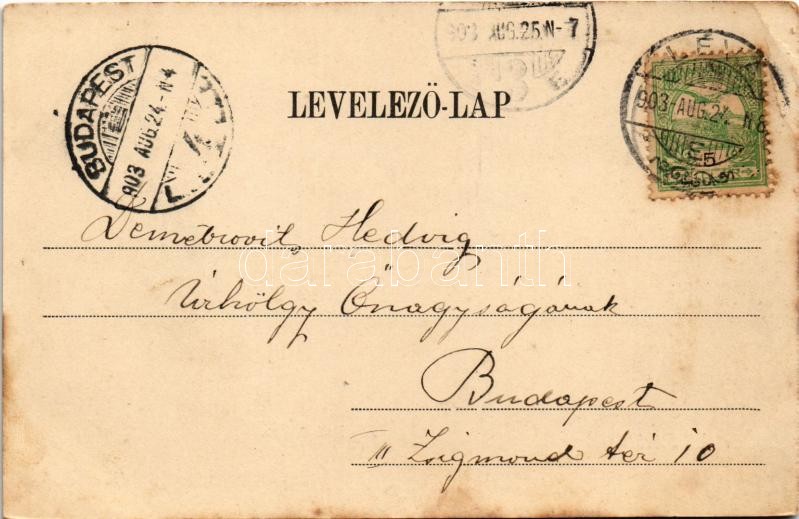 903 AUG.25.N-7
BUDAPEST
903 AUG.24.N4
LEVELEZŐ-LAP
LÉVA
903 AUG.24. N6
5
Demetrovits Hedvig
Úrhölgy Őnagyságának
Budapest
III Zsigmond tér 10
darabanth